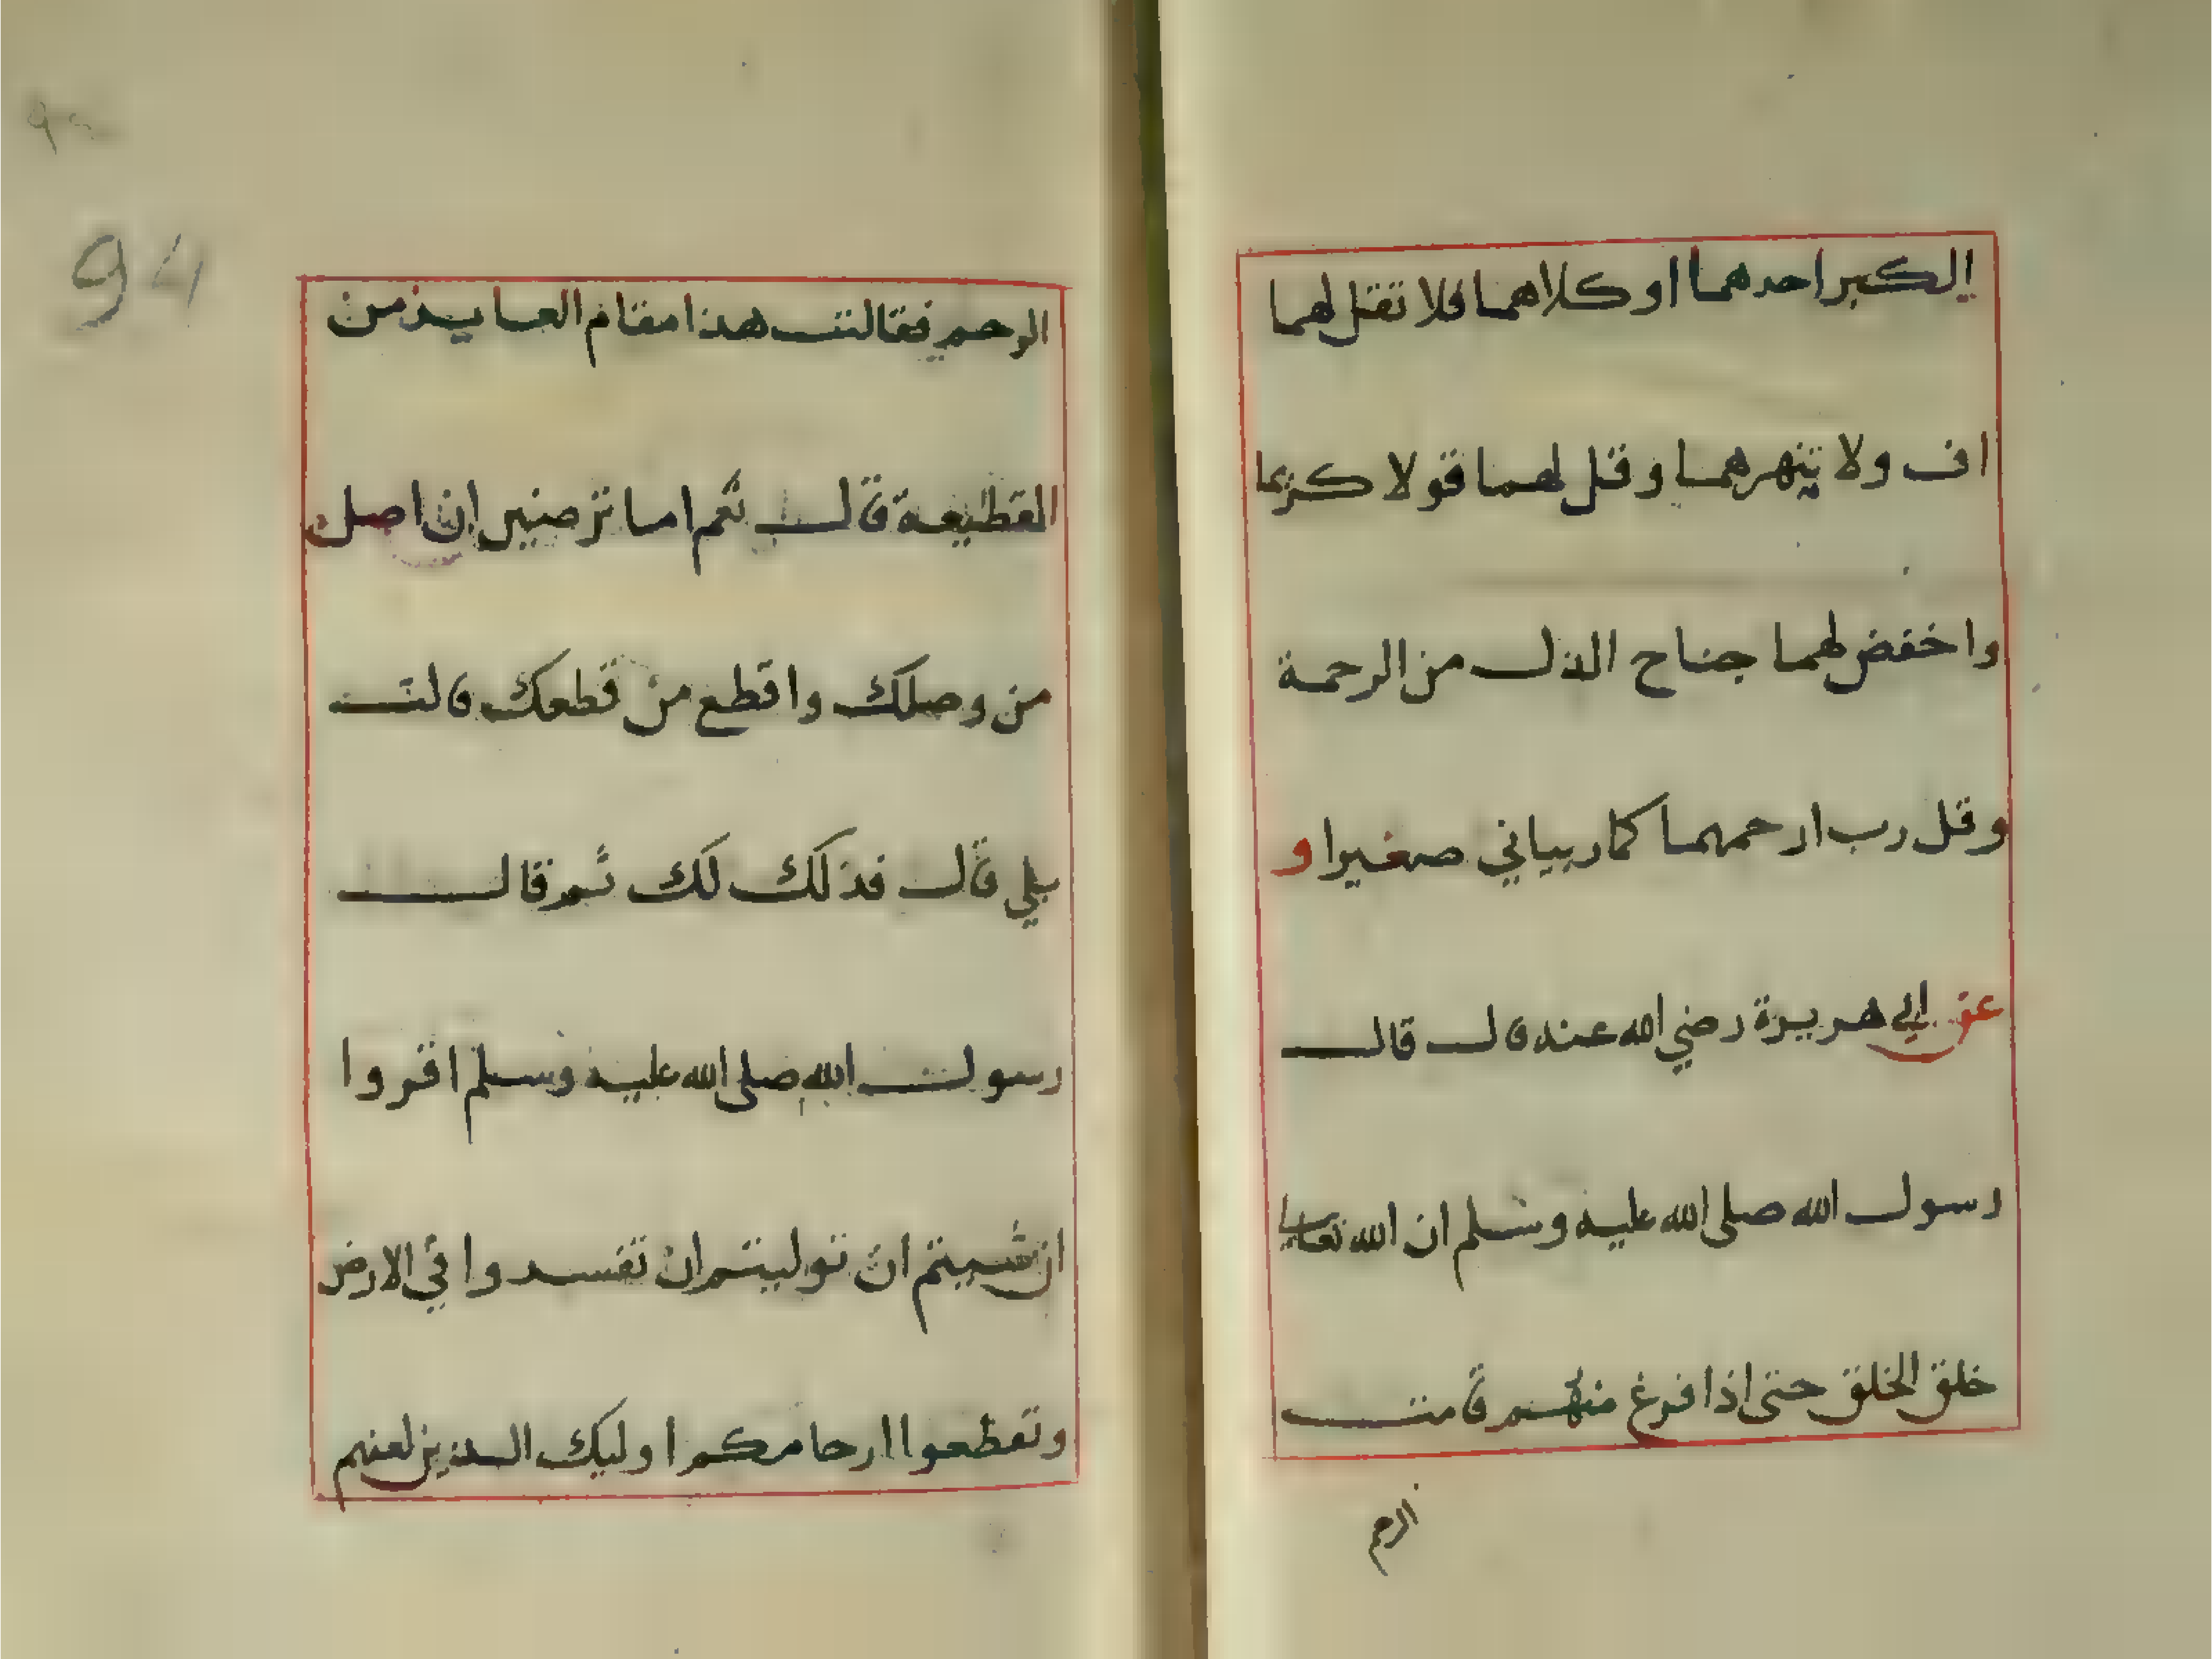 الكبر احدهما او كلاهما فلا تقل لهما
اف ولا تنهرهما وقل لهما قولا كريما
واخفض لهما جناح الذل من الرحمة
وقل رب ارحمهما كما ربياني صغيرا و
عن ابي هريرة رضي الله عنه قال قال
رسول الله صلى الله عليه وسلم ان الله تعالي
خلق الخلق حتى اذا فرغ منهم قامت
الرحم
94
الرحم فقالت هذا مقام العايذ من
القطيعة قال نعم اما ترضين ان اصل
من وصلك واقطع من قطعك قالت
بلي قال فذلك لك ثم قال
رسول الله صلى الله عليه وسلم اقروا
ان شيتم ان توليتم ان تفسدوا في الارض
وتقطعوا ارحامكم اوليك الذين لعنهم